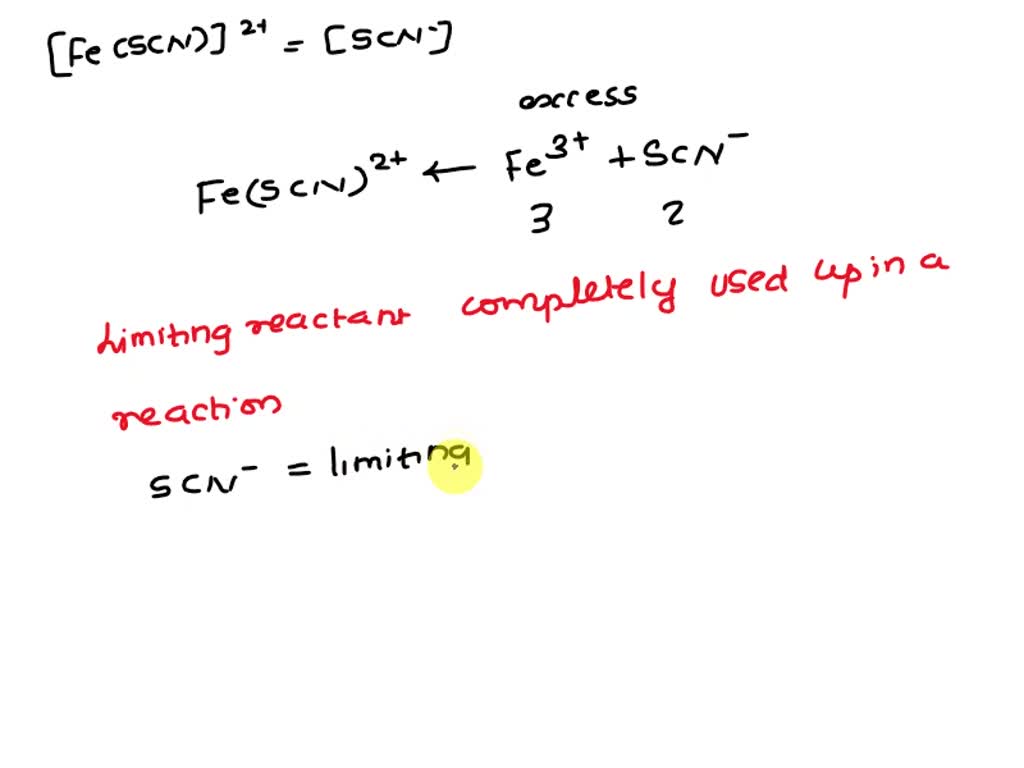 [Fe(SCN)]²⁺ = [SCN⁻]
excess
Fe(SCN)²⁺ ← Fe³⁺ + SCN⁻
3 2
Limiting reactant completely used up in a
reaction
SCN⁻ = limiting